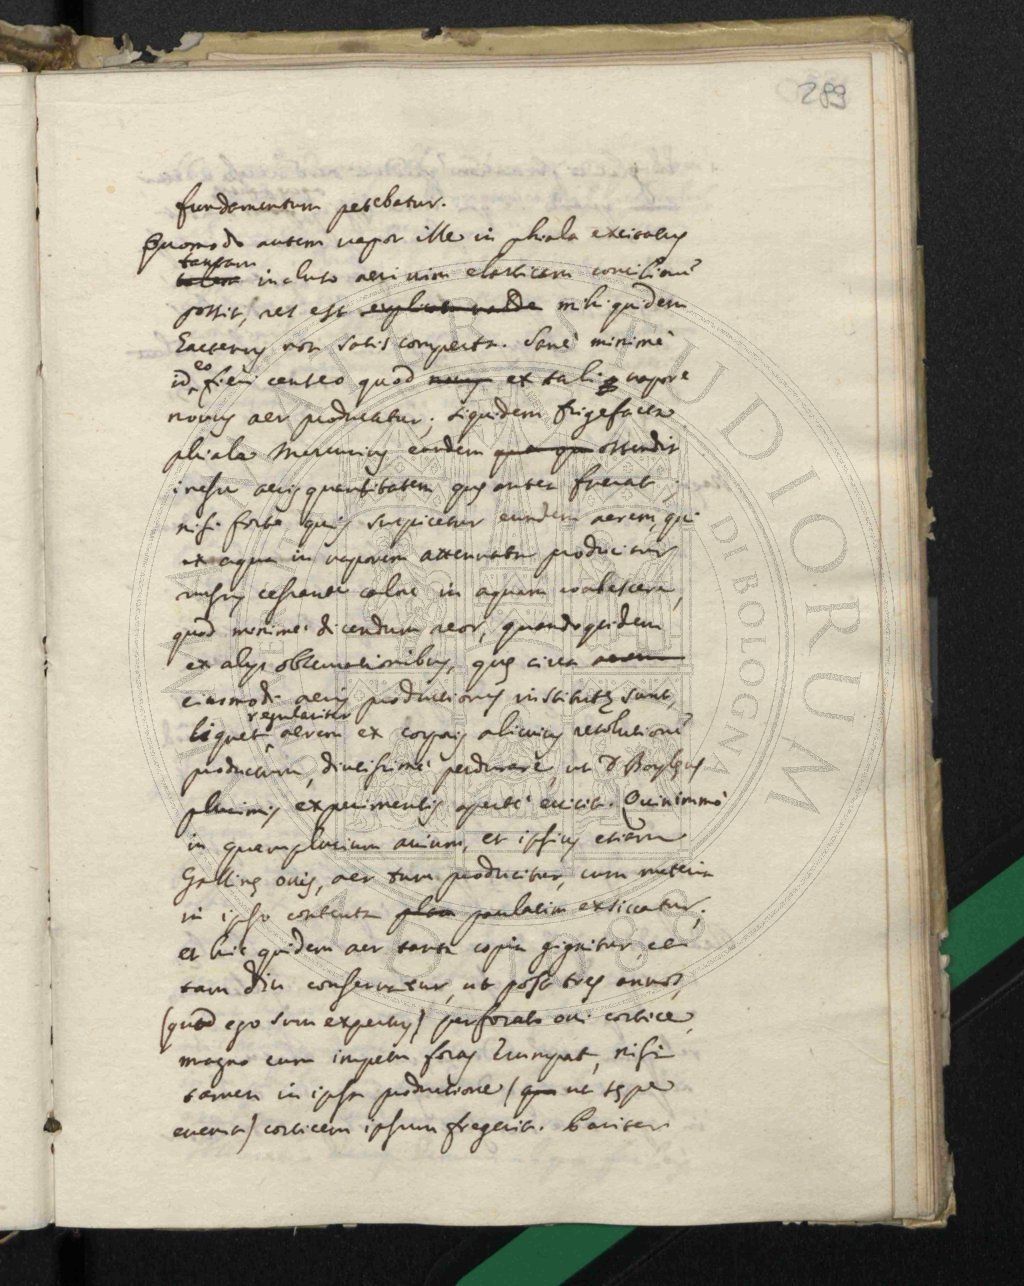 289
fundamentum petebatur.
Quomodo autem vapor ille in phiala excitatus
tantam
talem incluso aeri vim elasticam conciliare
possit, res est explicatu valde mihi quidem
hactenus non satis comperta. Sanè minimè
id eo fieri censeo quod novus ex tali vapore
novus aer producatur; siquidem frigefacta
phiala Mercurius eandem ostendit
inesse aeris quantitatem quę antea fuerat;
nisi forte quis suspicetur eundem aerem, qui
ex aqua in vaporem attenuata producitur
rursus cessante calore in aquam coalescere,
quod minimè dicendum reor, quandoquidem
ex alijs observationibus, quę circa aerem
eiusmodi aeris productionis institutę sunt,
regulariter
liquet, aerem ex corporis alicuius resolutione
productum, diutissimè perdurare, ut D. Boyleus
plurimis experimentis apertè evicit. Quinimmò
in quamplurium avium, et ipsius etiam
Gallinę ovis, aer tum producitur, cum materia
in ipso contenta plan paulatim exsiccatur;
et hic quidem aer tanta copia gignitur, ac
tam diu conservatur, ut post tres annos,
(quod ego sum expertus) perforato ovi cortice,
magno cum impetu foras erumpat, nisi
tamen in ipsa productione (qua ut sępe
evenit) corticem ipsum fregerit. Pariter
ALMA MATER STUDIORUM
UNIVERSITÀ DI BOLOGNA
A.D. 1088